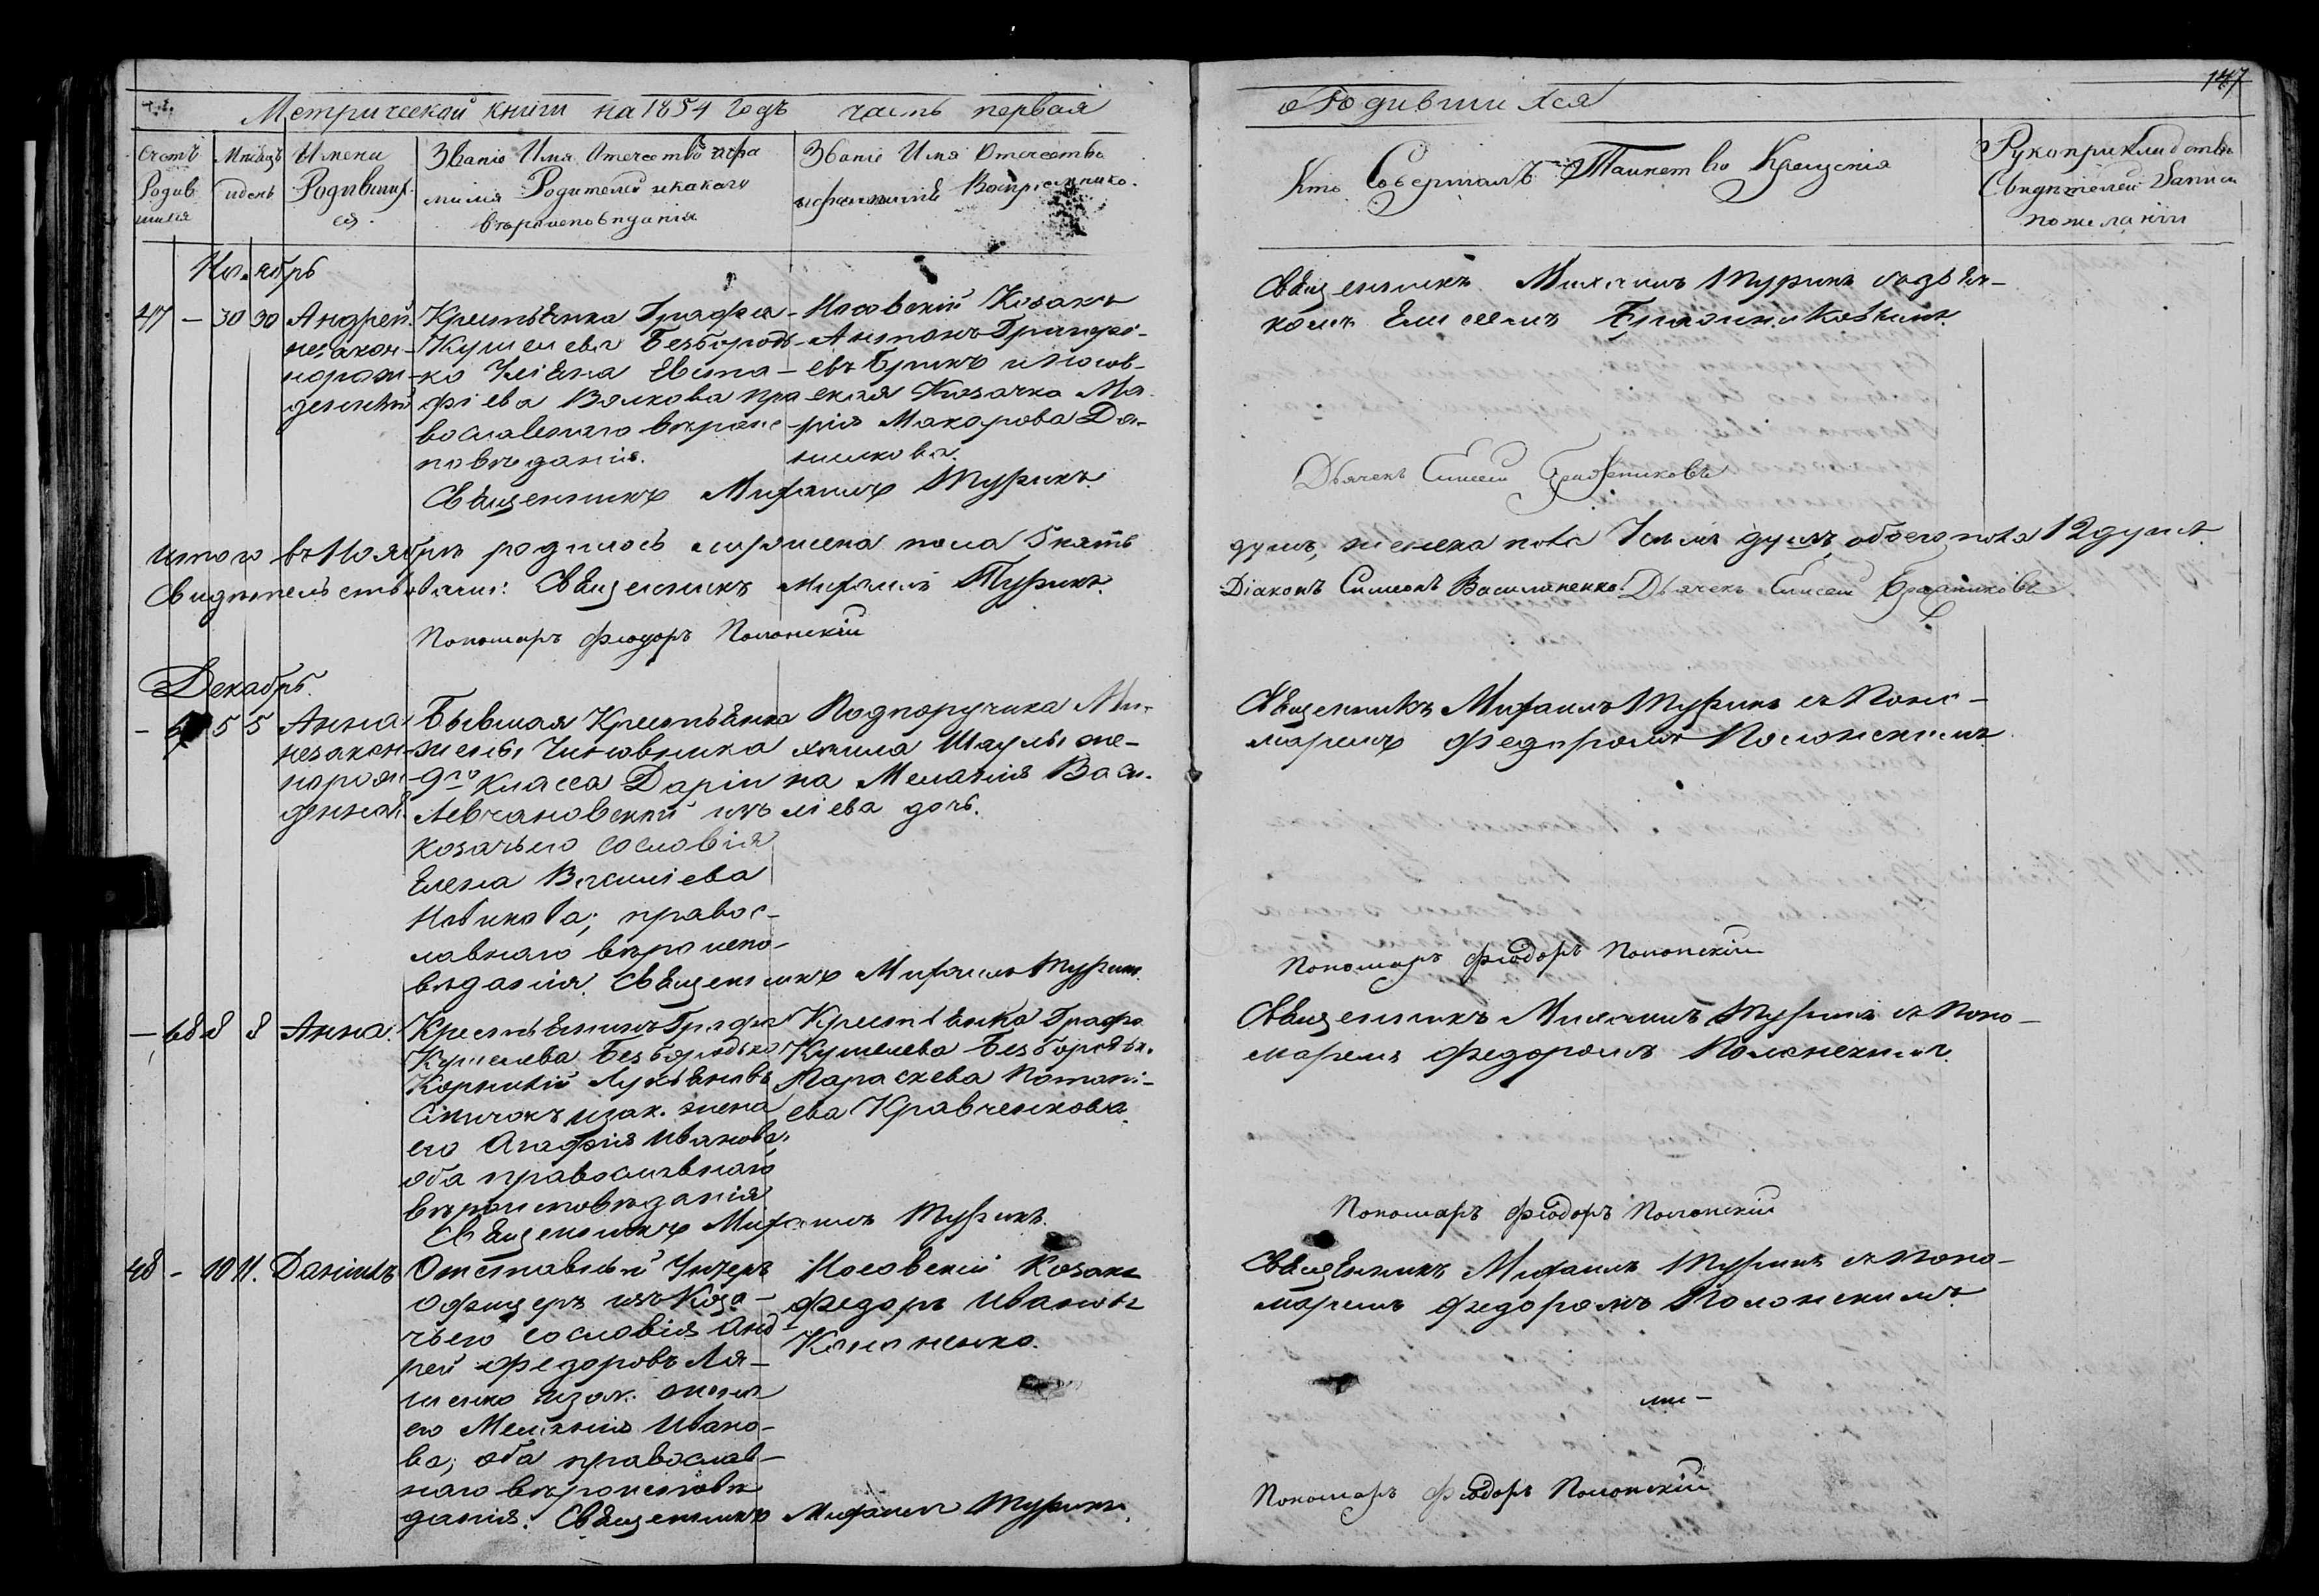 Метрической книги на 1854 годъ часть первая
о Родившихся
147
Счетъ Родив шихся
Мѣсяцъ и день
Имена Родившихся.
Званіе Имя Отечество и фамилія Родителей и какого вѣроисповѣданія
Званіе Имя Отечество и фамилія Воспріемнико.
Кто Совершалъ Таинство Крещенія
Рукоприкладство Свидѣтелей Записи по желанію
Ноябрь
47 – 30 30
Андрей
незакон-
норож-
денный
Крестьянка Графа
Кушелева Безбородь-
ко Уліяна Евста-
фіева Волкова пра
вославнаго вѣроис-
повѣданія.
Носовскій Козакъ
Антонъ Григорі-
евъ Брикъ и Носов-
ская Козачка Ма-
рія Макарова Да-
Священникъ Михаилъ Турикъ.
Священникъ Михаилъ Турикъ съ дья-
комъ Елисеемъ
Дьячекъ Елисей
Итого въ Ноябрѣ родилось мужеска пола 5 пять
душъ, женска пола 7 семь душъ, обоего пола 12 душъ.
Свидѣтельствовали: Священникъ Михаилъ Турикъ.
Діаконъ Симеонъ Василиненко. Дьячекъ Елисей
Пономарь Феодоръ Полонскій
Декабрь.
– 5 5
Анна
незакон-
норож-
денная.
Бывшая Крестьянка
жены Чиновника
9го Класса Даріи
Левчановской изъ
козачьего сословія
Елена Василіева
Новикова; правос-
лавнаго вѣроиспо-
вѣданія. Священникъ Михаилъ Турикъ.
Подпоручика Ми-
хаила Шаулы же-
на Меланія Васи-
ліева дочь.
Священникъ Михаилъ Турикъ съ Поно-
маремъ Федоромъ Полонскимъ
Пономарь Феодоръ Полонскій
– 68 8 8
Анна.
Крестьянинъ Графа
Кушелева Безбородька
Корнилій Лукьяновъ
изак. жена
его Агафія Иванова,
оба православнаго
вѣроисповѣданія
Священникъ Михаилъ Турикъ.
Крестьянка Графа
Кушелева Безбородьк.
Параскева Потапі-
ева Кравченкова.
Священникъ Михаилъ Турикъ съ Поно-
маремъ Федоромъ Полонскимъ.
Пономарь Феодоръ Полонскій
48 – 10 11.
Даніилъ
Отставный Унтеръ
Офицеръ изъ Коза-
чьего сословія Анд-
рей Федоровъ Ля-
шенко изак. жена
его Меланія Ивано-
ва; оба православ-
наго вѣроисповѣ
данія. Священникъ Михаилъ Турикъ.
Носовскій Козакъ
Федоръ Ивановъ
Священникъ Михаилъ Турикъ съ Поно-
маремъ Федоромъ Полонскимъ
Пономарь Феодоръ Полонскій